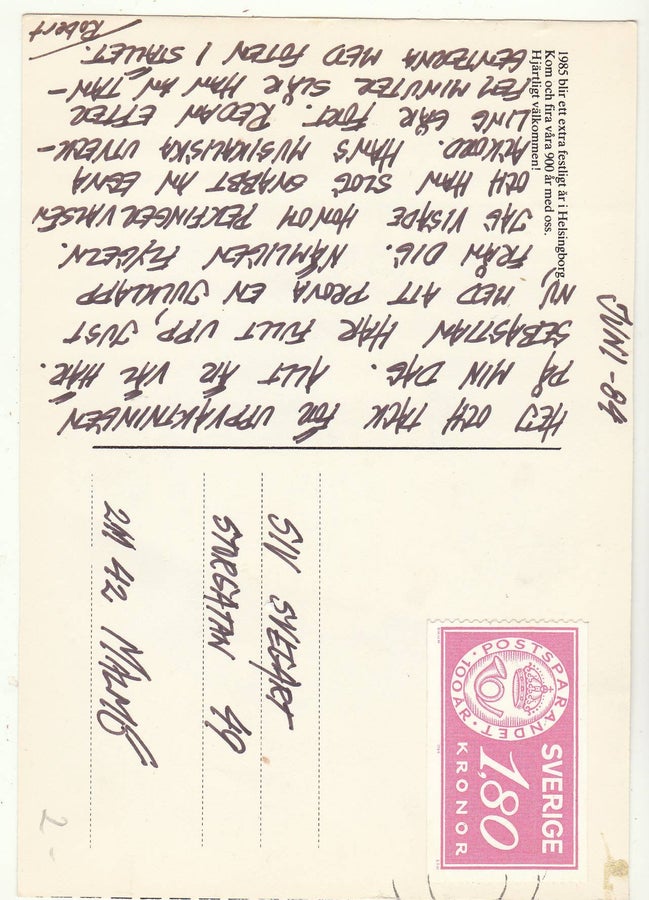 JUNI -84
HEJ OCH TACK FÖR UPPVAKTNINGEN
PÅ MIN DAG. ALLT ÄR VÄL HÄR.
SEBASTIAN HAR FULLT UPP, JUST
NU, MED ATT PROVA EN JULKLAPP
FRÅN DIG. NÄMLIGEN FLYGELN.
JAG VISADE HONOM PEKFINGERVALSEN
OCH HAN SLOG SNABBT AN EGNA
ACKORD. HANS MUSIKALISKA UTVECK-
LING GÅR FORT. REDAN EFTER
FEM MINUTER SLÅR HAN AN TAN-
GENTERNA MED FOTEN I STÄLLET.
Robert
1985 blir ett extra festligt år i Helsingborg.
Kom och fira våra 900 år med oss.
Hjärtligt välkommen!
SIV
STORGATAN 49
211 42 MALMÖ
POSTSPARANDET 100 ÅR
SVERIGE
1,80
KRONOR
2-